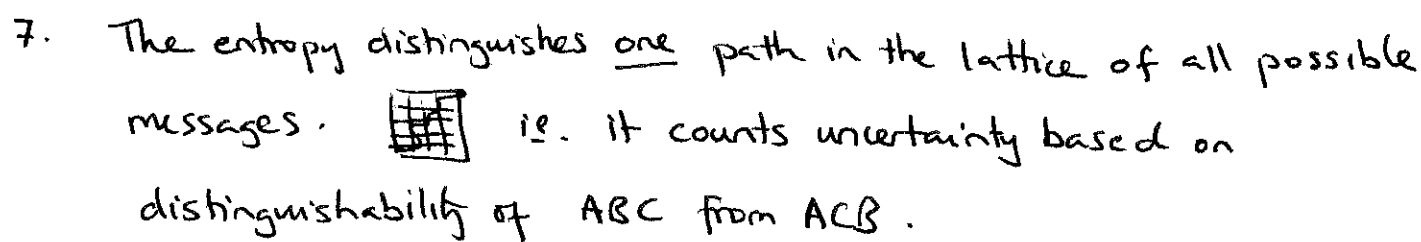 7. The entropy distinguishes one path in the lattice of all possible
messages. ie. it counts uncertainty based on
distinguishability of ABC from ACB.